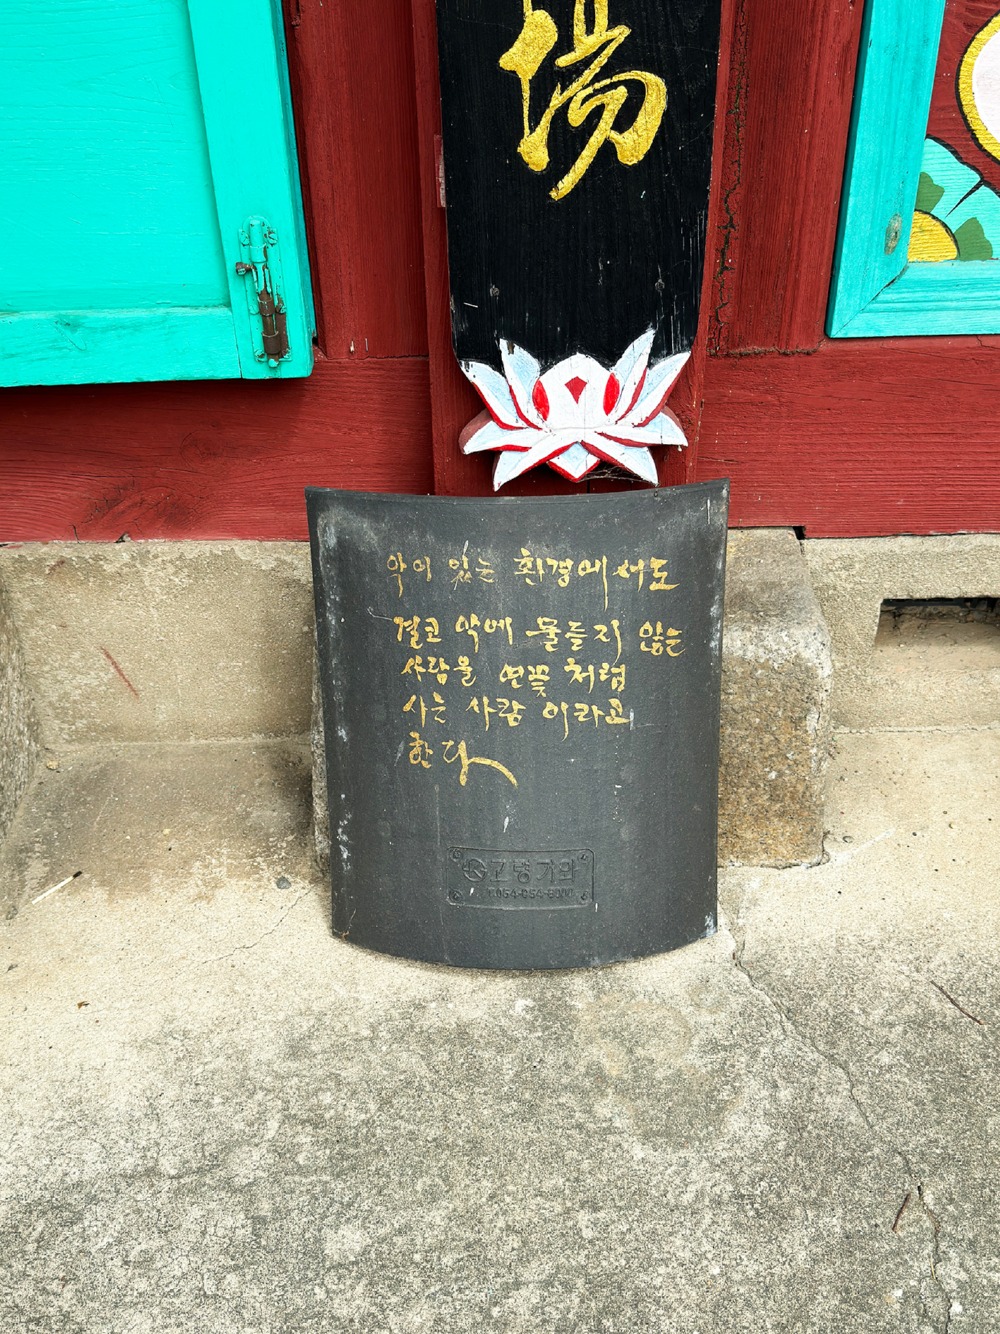 場
악이 있는 환경에서도
결코 악에 물들지 않는
사람을 연꽃 처럼
사는 사람 이라고
한다
고령기와